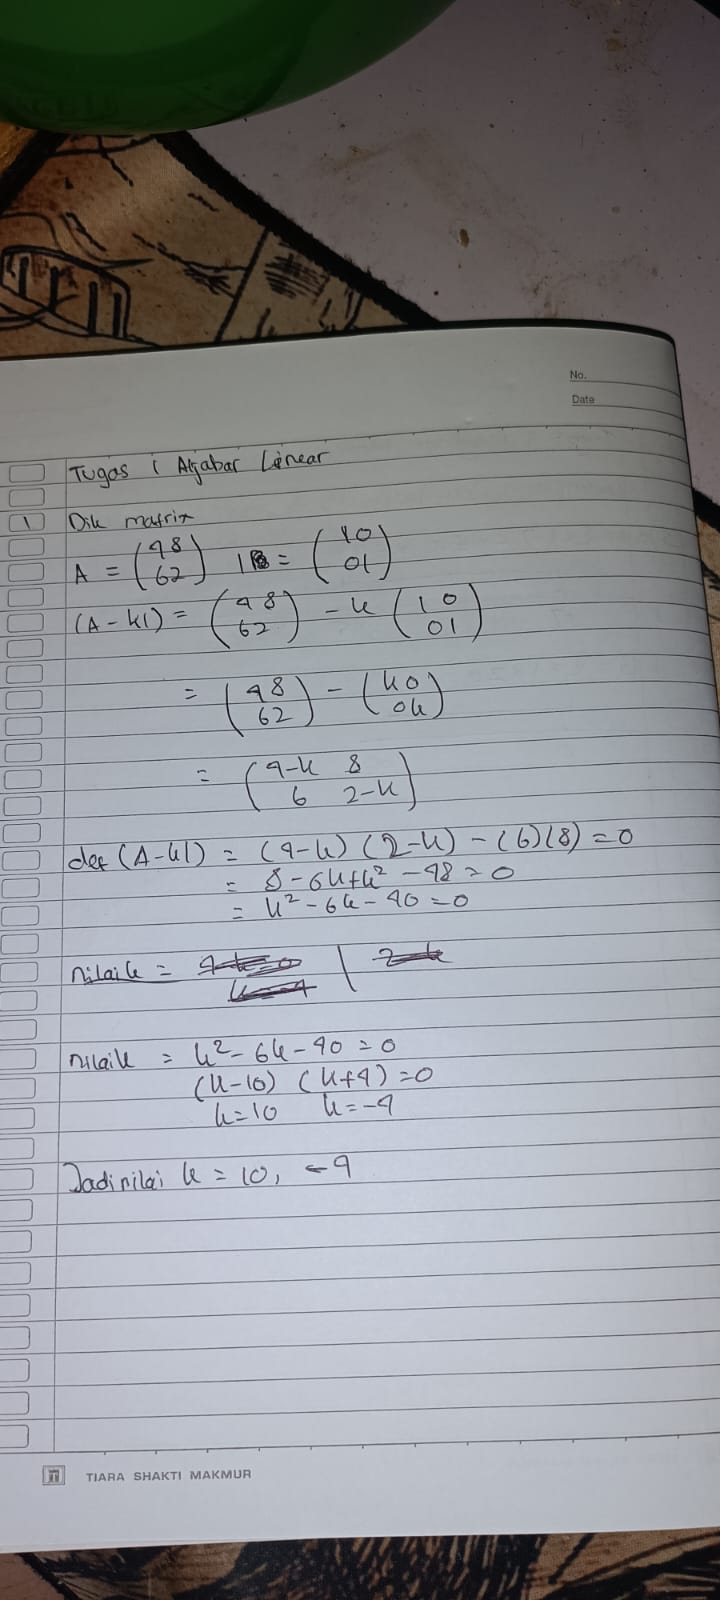 No.
Date
Tugas 1 Aljabar Linear
1 Dik matrix
A = (4 8 / 6 2) I = (1 0 / 0 1)
(A - kI) = (4 8 / 6 2) - k (1 0 / 0 1)
= (4 8 / 6 2) - (k 0 / 0 k)
= (4-k 8 / 6 2-k)
det (A-kI) = (4-k) (2-k) - (6)(8) = 0
= 8 - 6k + k² - 48 = 0
= k² - 6k - 40 = 0
nilai k =
nilai k = k² - 6k - 40 = 0
(k-10) (k+4) = 0
k = 10 k = -4
Jadi nilai k = 10, -4
TIARA SHAKTI MAKMUR